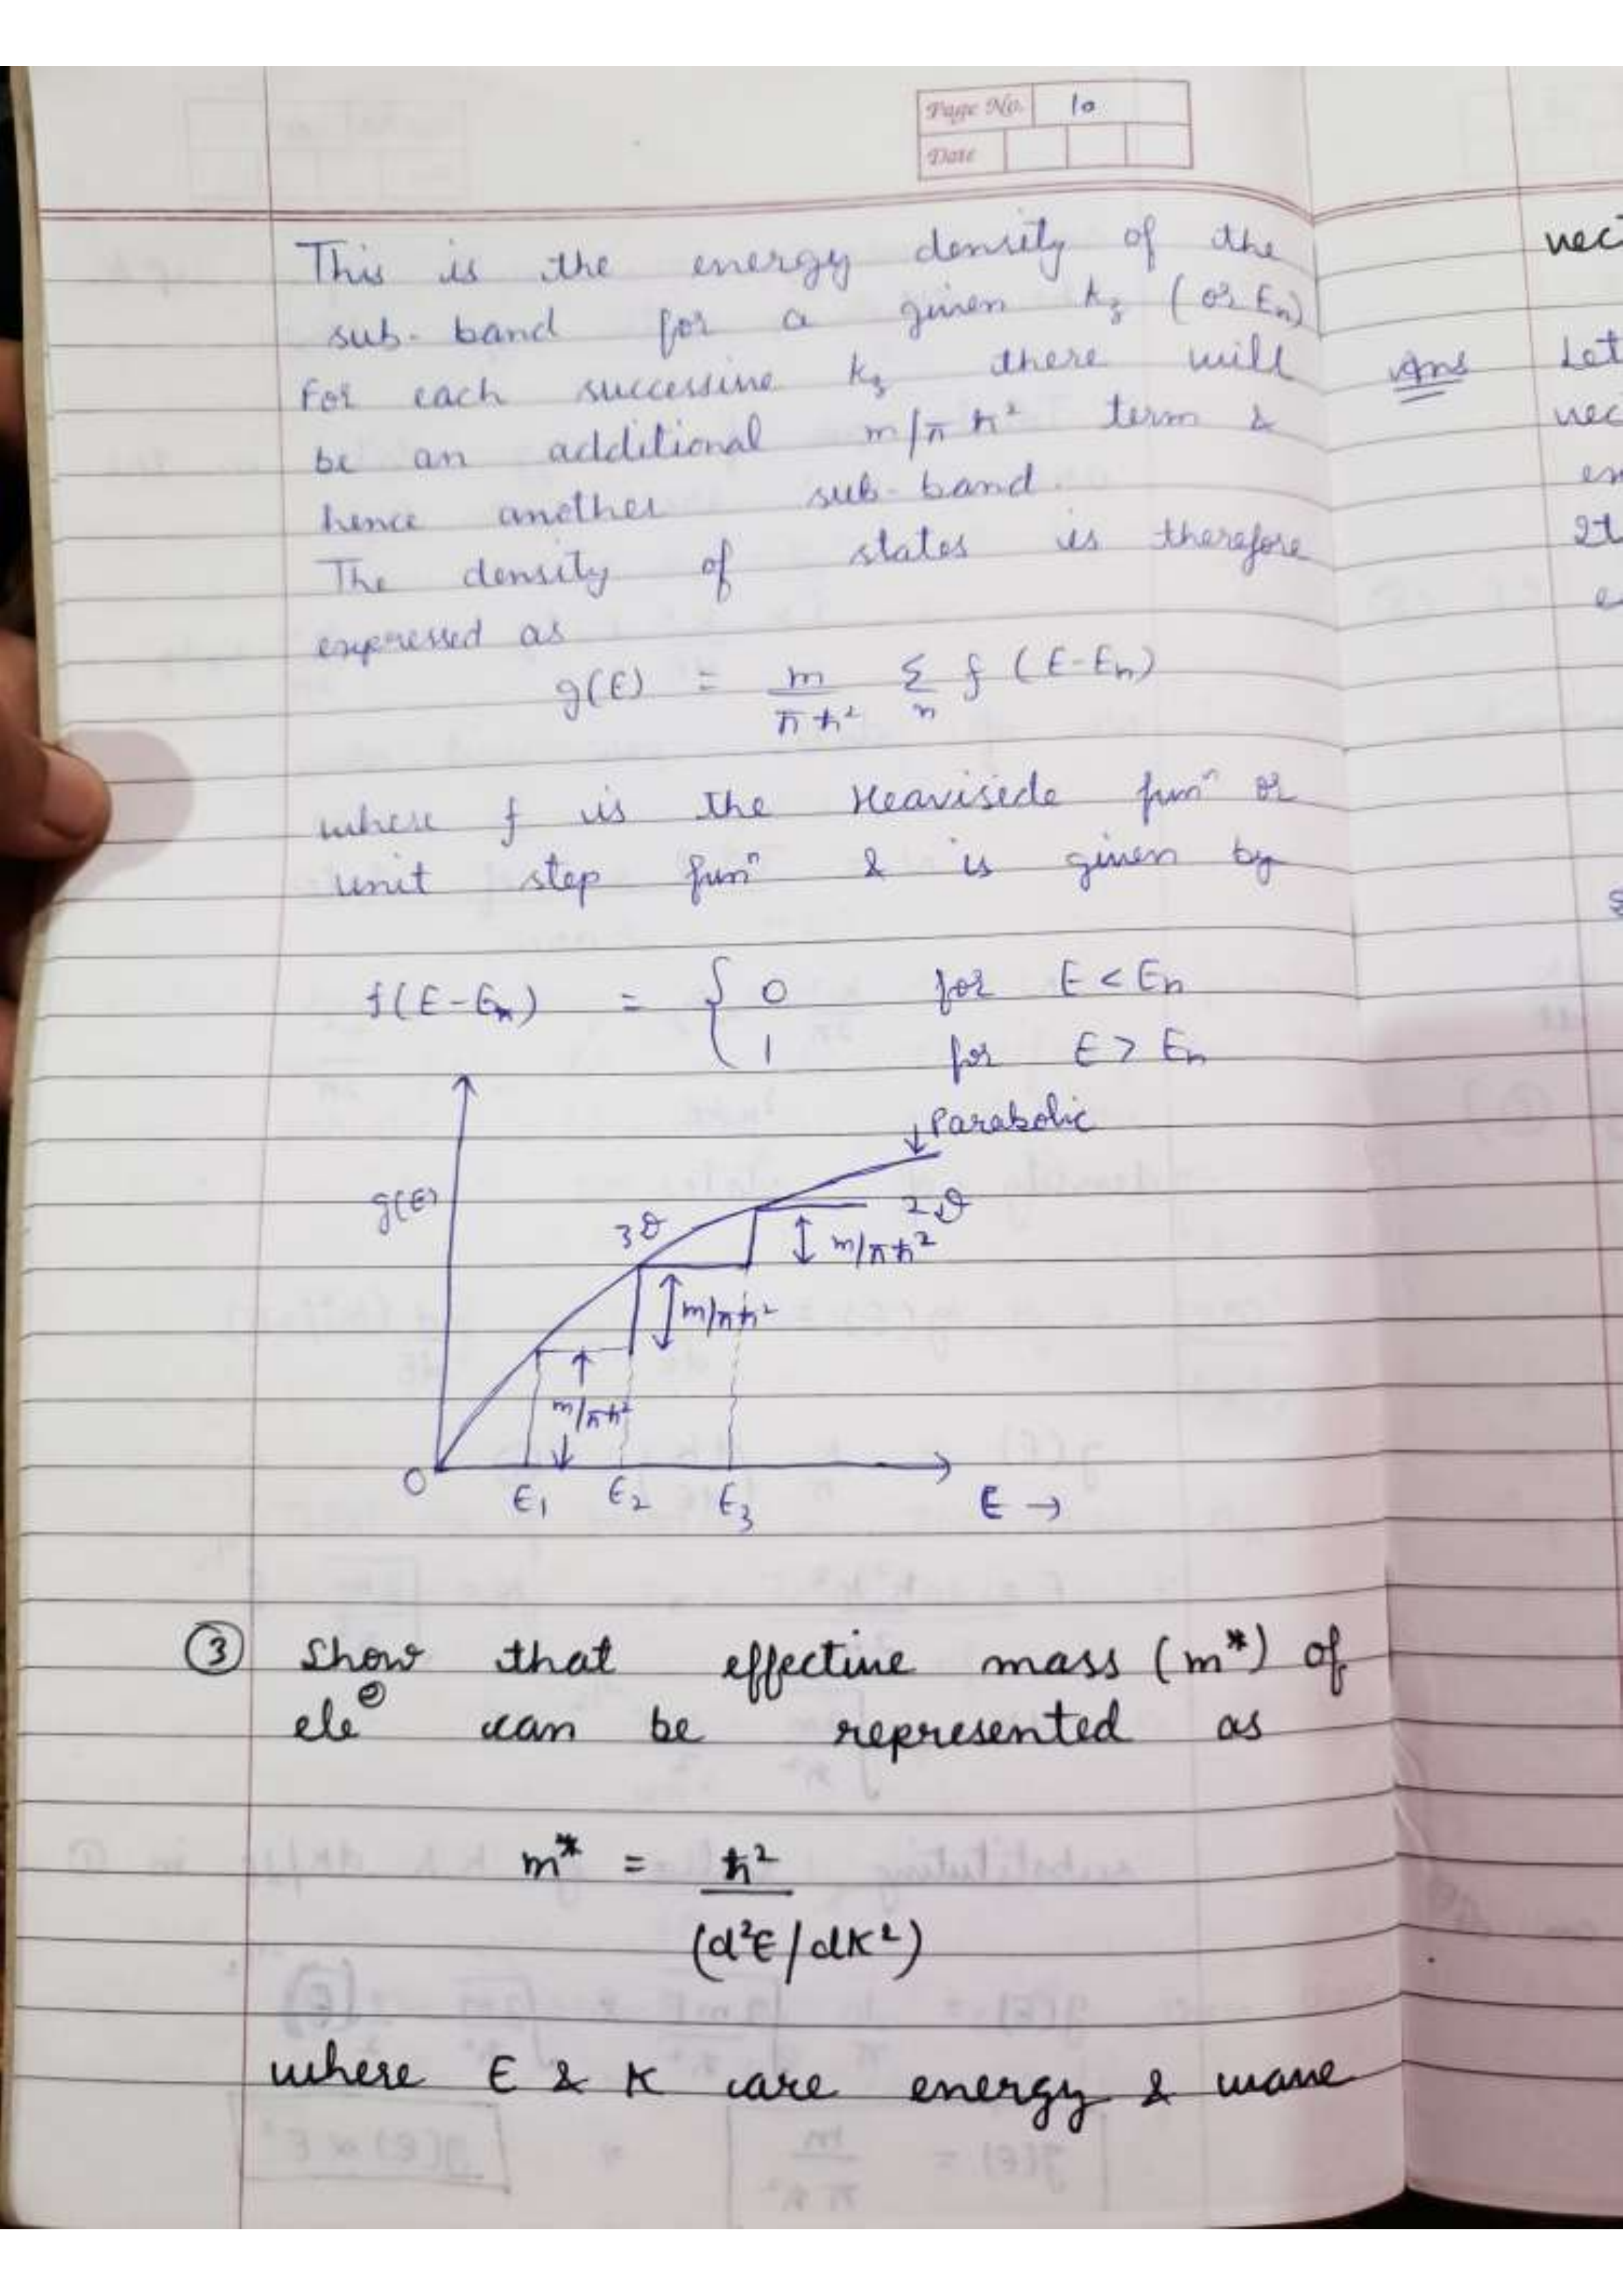 Page No. 10
Date
This is the energy density of the
sub-band for a given kz (or En)
For each successive kz there will
be an additional m/πħ² term &
hence another sub-band.
The density of states is therefore
expressed as
g(E) = m/πħ² Σn f (E-En)
where f is the Heaviside funⁿ or
unit step funⁿ & is given by
f(E-En) = { 0 for E < En
1 for E > En
↓Parabolic
g(E)
3D
2D
m/πħ²
m/πħ²
m/πħ²
0
E1 E2 E3 E →
③ Show that effective mass (m*) of
ele⊖ can be represented as
m* = ħ²
(d²E/dK²)
where E & K are energy & wave
vec
Ans Let
vec
en
It
e